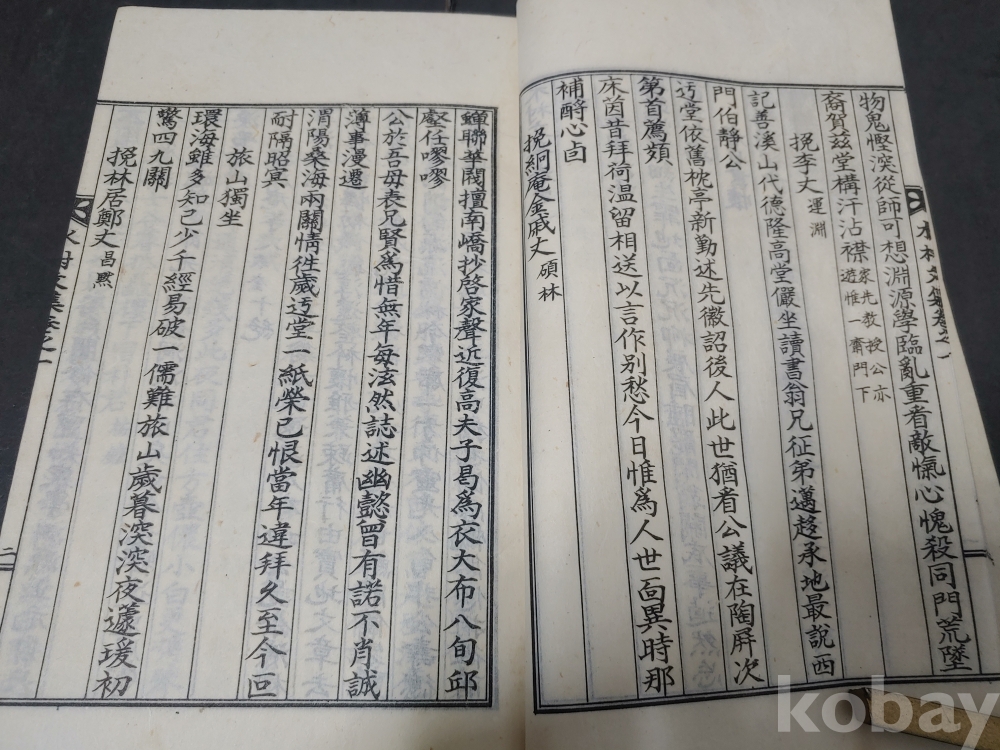 物鬼慳深從師可想淵源學臨亂重看敵愾心愧殺同門荒墜
裔賀玆堂構汗沾襟家先教授公亦
遊惟一齋門下
挽李丈運淵
記善溪山代德隆高堂儼坐讀書翁兄征弟邁趍承地最說西
門伯靜公
迃堂依舊枕亭新勤述先徽詔後人此世猶看公議在陶屛次
第首薦頻
床茵昔拜荷溫留相送以言作别愁今日惟爲人世面異時那
補酧心卣
挽絅庵金戚丈碩林
蟬聯華閥擅南嶠抄啓家聲近復高夫子曷爲衣大布八旬邱
壑任嘐嘐
公於吾母表兄賢爲惜無年每泫然誌述幽懿曾有諾不肖誠
薄事漫遷
渭陽桑海兩關情徃歲迃堂一紙榮已恨當年違拜久至今回
耐隔昭冥
旅山獨坐
環海雖多知己少千經易破一儒難旅山歲暮深深夜蘧瑗初
驚四九關
挽林居鄭丈昌黙
水村文集卷之一
二
kobay